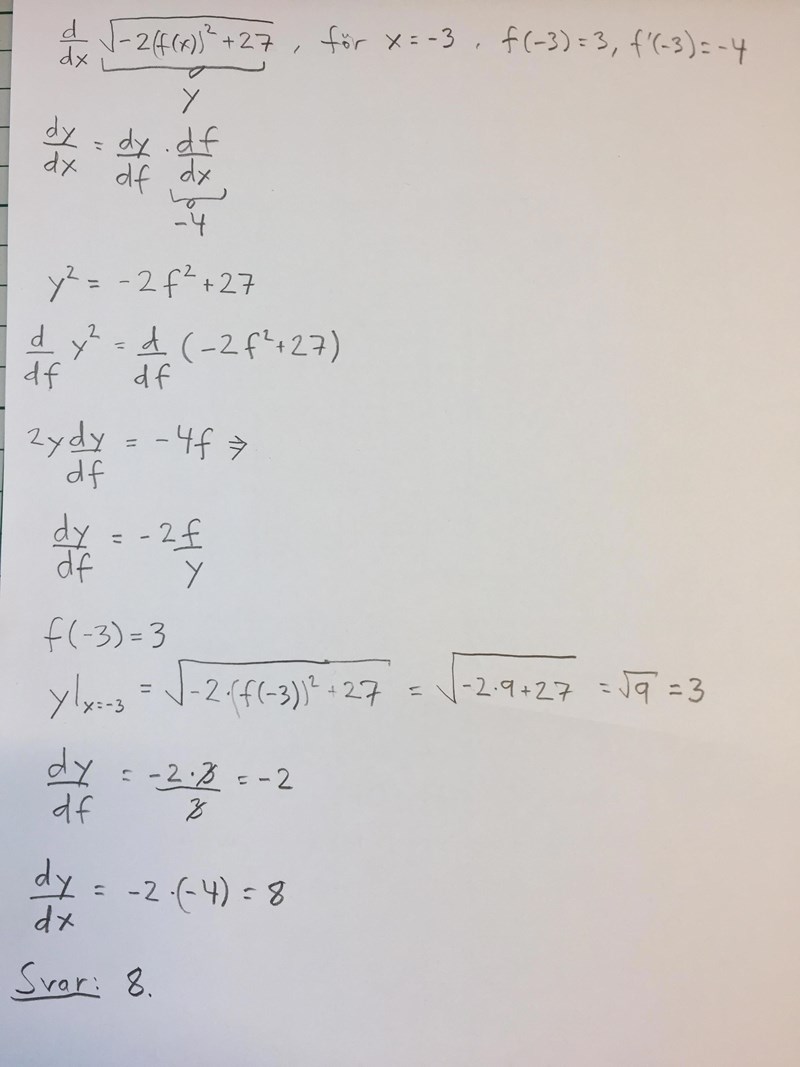 d/dx √(-2(f(x))² + 27) , för x = -3 , f(-3) = 3, f'(-3) = -4
y
dy/dx = dy/df · df/dx
-4
y² = -2f² + 27
d/df y² = d/df (-2f² + 27)
2y dy/df = -4f ⇒
dy/df = -2 f/y
f(-3) = 3
y|x=-3 = √(-2·(f(-3))² + 27) = √(-2·9+27) = √9 = 3
dy/df = -2·3/3 = -2
dy/dx = -2·(-4) = 8
Svar: 8.